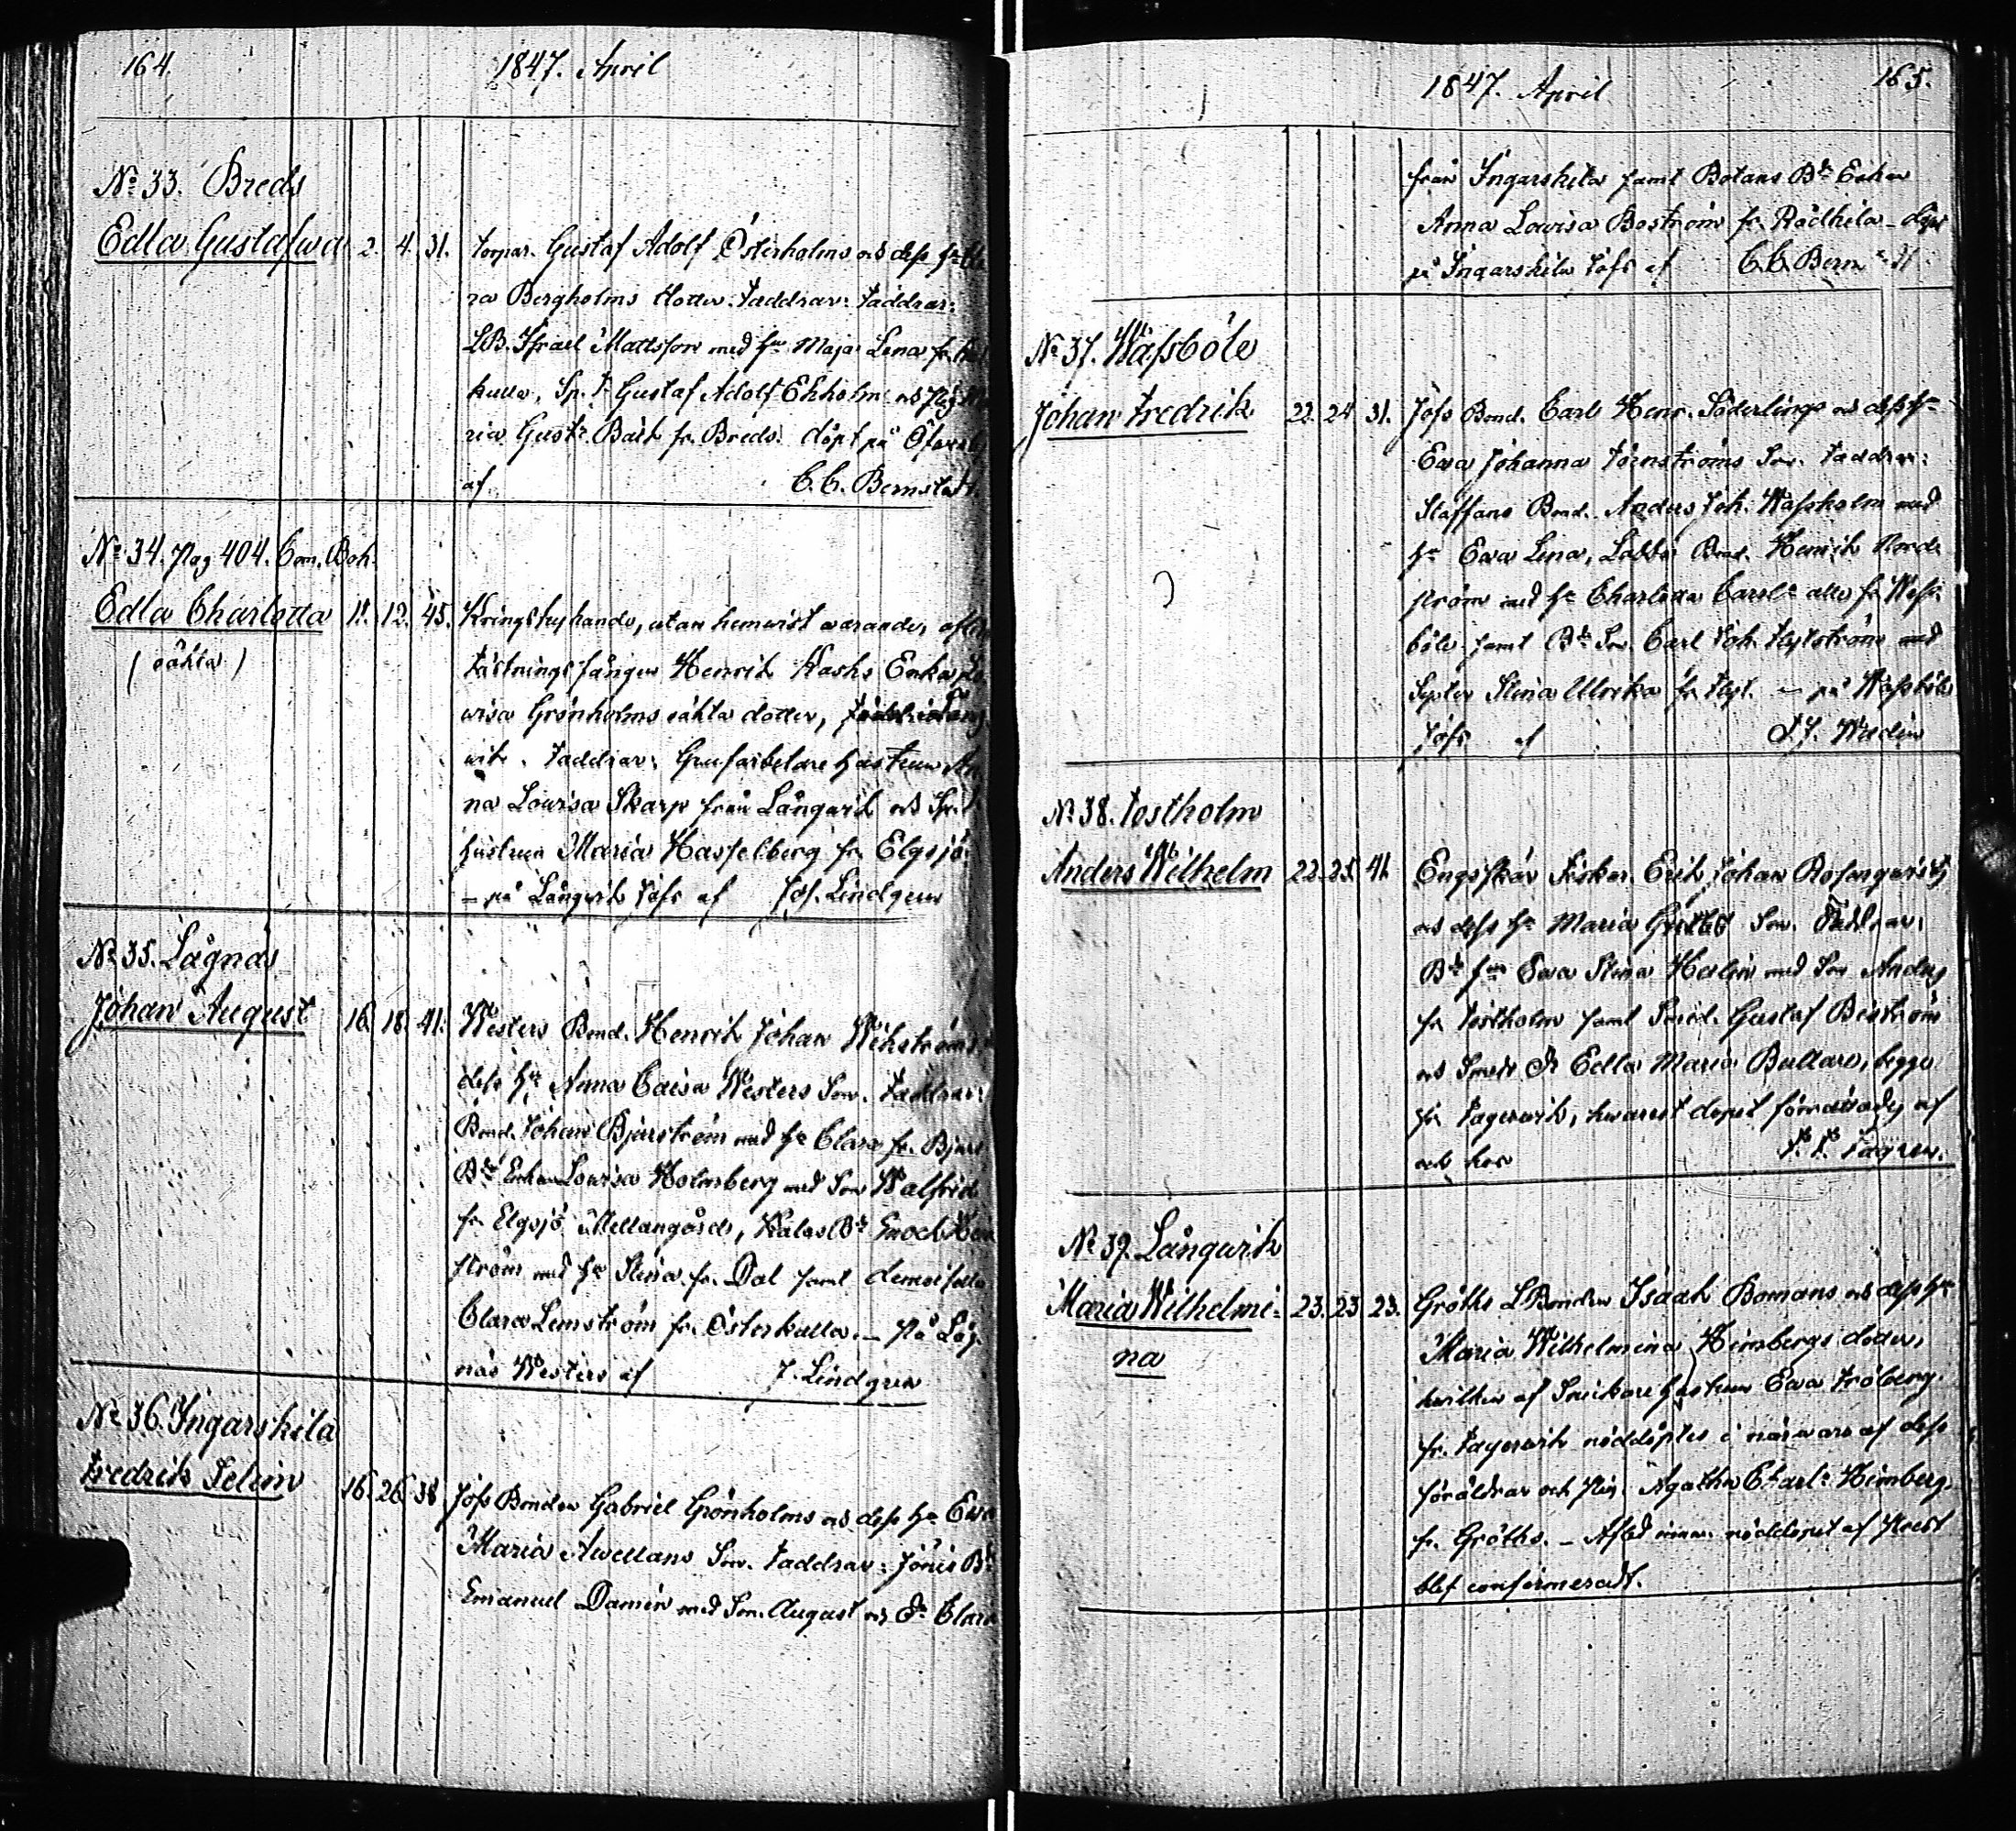 164.
1847. April
No 33. Breds
Edla Gustafwa 2. 4. 31. torpar. Gustaf Adolf Österholms och dess hu
ra Bergholms dotter. Faddrar: Faddrar:
LB. Israel Mattsson med hu Maja Lena fr.
kulla, Sp. Gustaf Adolf Ekholm och Pig
ria Gust: Bäck fr. Breds. döpt på
af C. C. Bernstädt.
No 34. Pag 404. Com. Boh.
Edla Charlotta 11. 12. 45. Kringstrykande, utan hemwist warande, afl
(oäkta) Fästningsfången Henrik Kasks Enka
wisa Grönholms oäkta dotter,
wik. Faddrar: Grufarbetare hustrun An
na Lowisa Skarp från Långwik och
hustrun Maria Hasselberg fr. Elgsjö
– på Långwik Töfs af Joh. Lindgren
No 35. Lågnäs
Johan August 16. 18. 41. Westers Bond. Henrik Johan Wikströms
dess hu Anna Caisa Westers Son. Faddrar:
Bond. Johan Bjurström med hu Clara fr. Bjurs
Bde Enkan Lowisa Holmberg med Son Walfrid
fr. Elgsjö Mellangårds, Kalas Bde Enoch
ström med hu Stina fr. Dal samt demoiselle
Clara Lemström fr. Österkulla. – På Låg-
näs Westers af J. Lindgren
No 36. Ingarskila
Fredrik Selim 16. 26. 38 Jofs Bonden Gabriel Grönholms och dess hu Ewa
Maria Awellans Son. Faddrar: Jönis Bde
Emanuel Damén med Son August och Dr Clara
1847. April
165.
från Ingarskila samt Botans Bde Enkan
Anna Lowisa Boström fr. Rådkila – döpt
på Ingarskila Tofs af C. C. Bern
No 37. Wassböle
Johan Fredrik 22. 24 31. Jofs Bond. Carl Henr. Söderlings och dess hu
Ewa Johanna Törnströms Son. Faddrar:
Staffans Bond. Anders Joh. Wassholm med
hu Ewa Lena, Labbas Bond. Henrik Nord-
ström med hu Charlotta Carol: alla fr. Wass-
böle samt Bde Son Carl Joh. Flytström med
Syster Stina Ulrika fr. Flyt. – på Wassböle
Jofs af F. F. Wadén
No 38. Tostholm
Anders Wilhelm 22. 25. 41. Engisskär Fiskar. Erik Johan Rosenqwists
och dess hu Maria Son. Faddrar:
Bde hu Ewa Stina Hedin med Son Anders
fr. Tostholm samt Smed. Gustaf Biström
och Smeds Dr Edla Maria Ballare, begge
fr. Fagerwik, hwarest dopet förrättades af
och hos F. F. Fagren.
No 39. Långwik
Maria Wilhelmi- 23. 23. 23. Gröths L Bonden Isaak Bomans och dess hu
na Maria Wilhelmina Heimbergs dotter,
hwilken af Snickare hustrun Ewa Fröberg
fr. Fagerwik nöddöptes i närwaro af dess
föräldrar och Pig. Agatha Charl: Heimberg
fr. Gröths. – Afled innan nöddopet af Prest
blef confirmeradt.